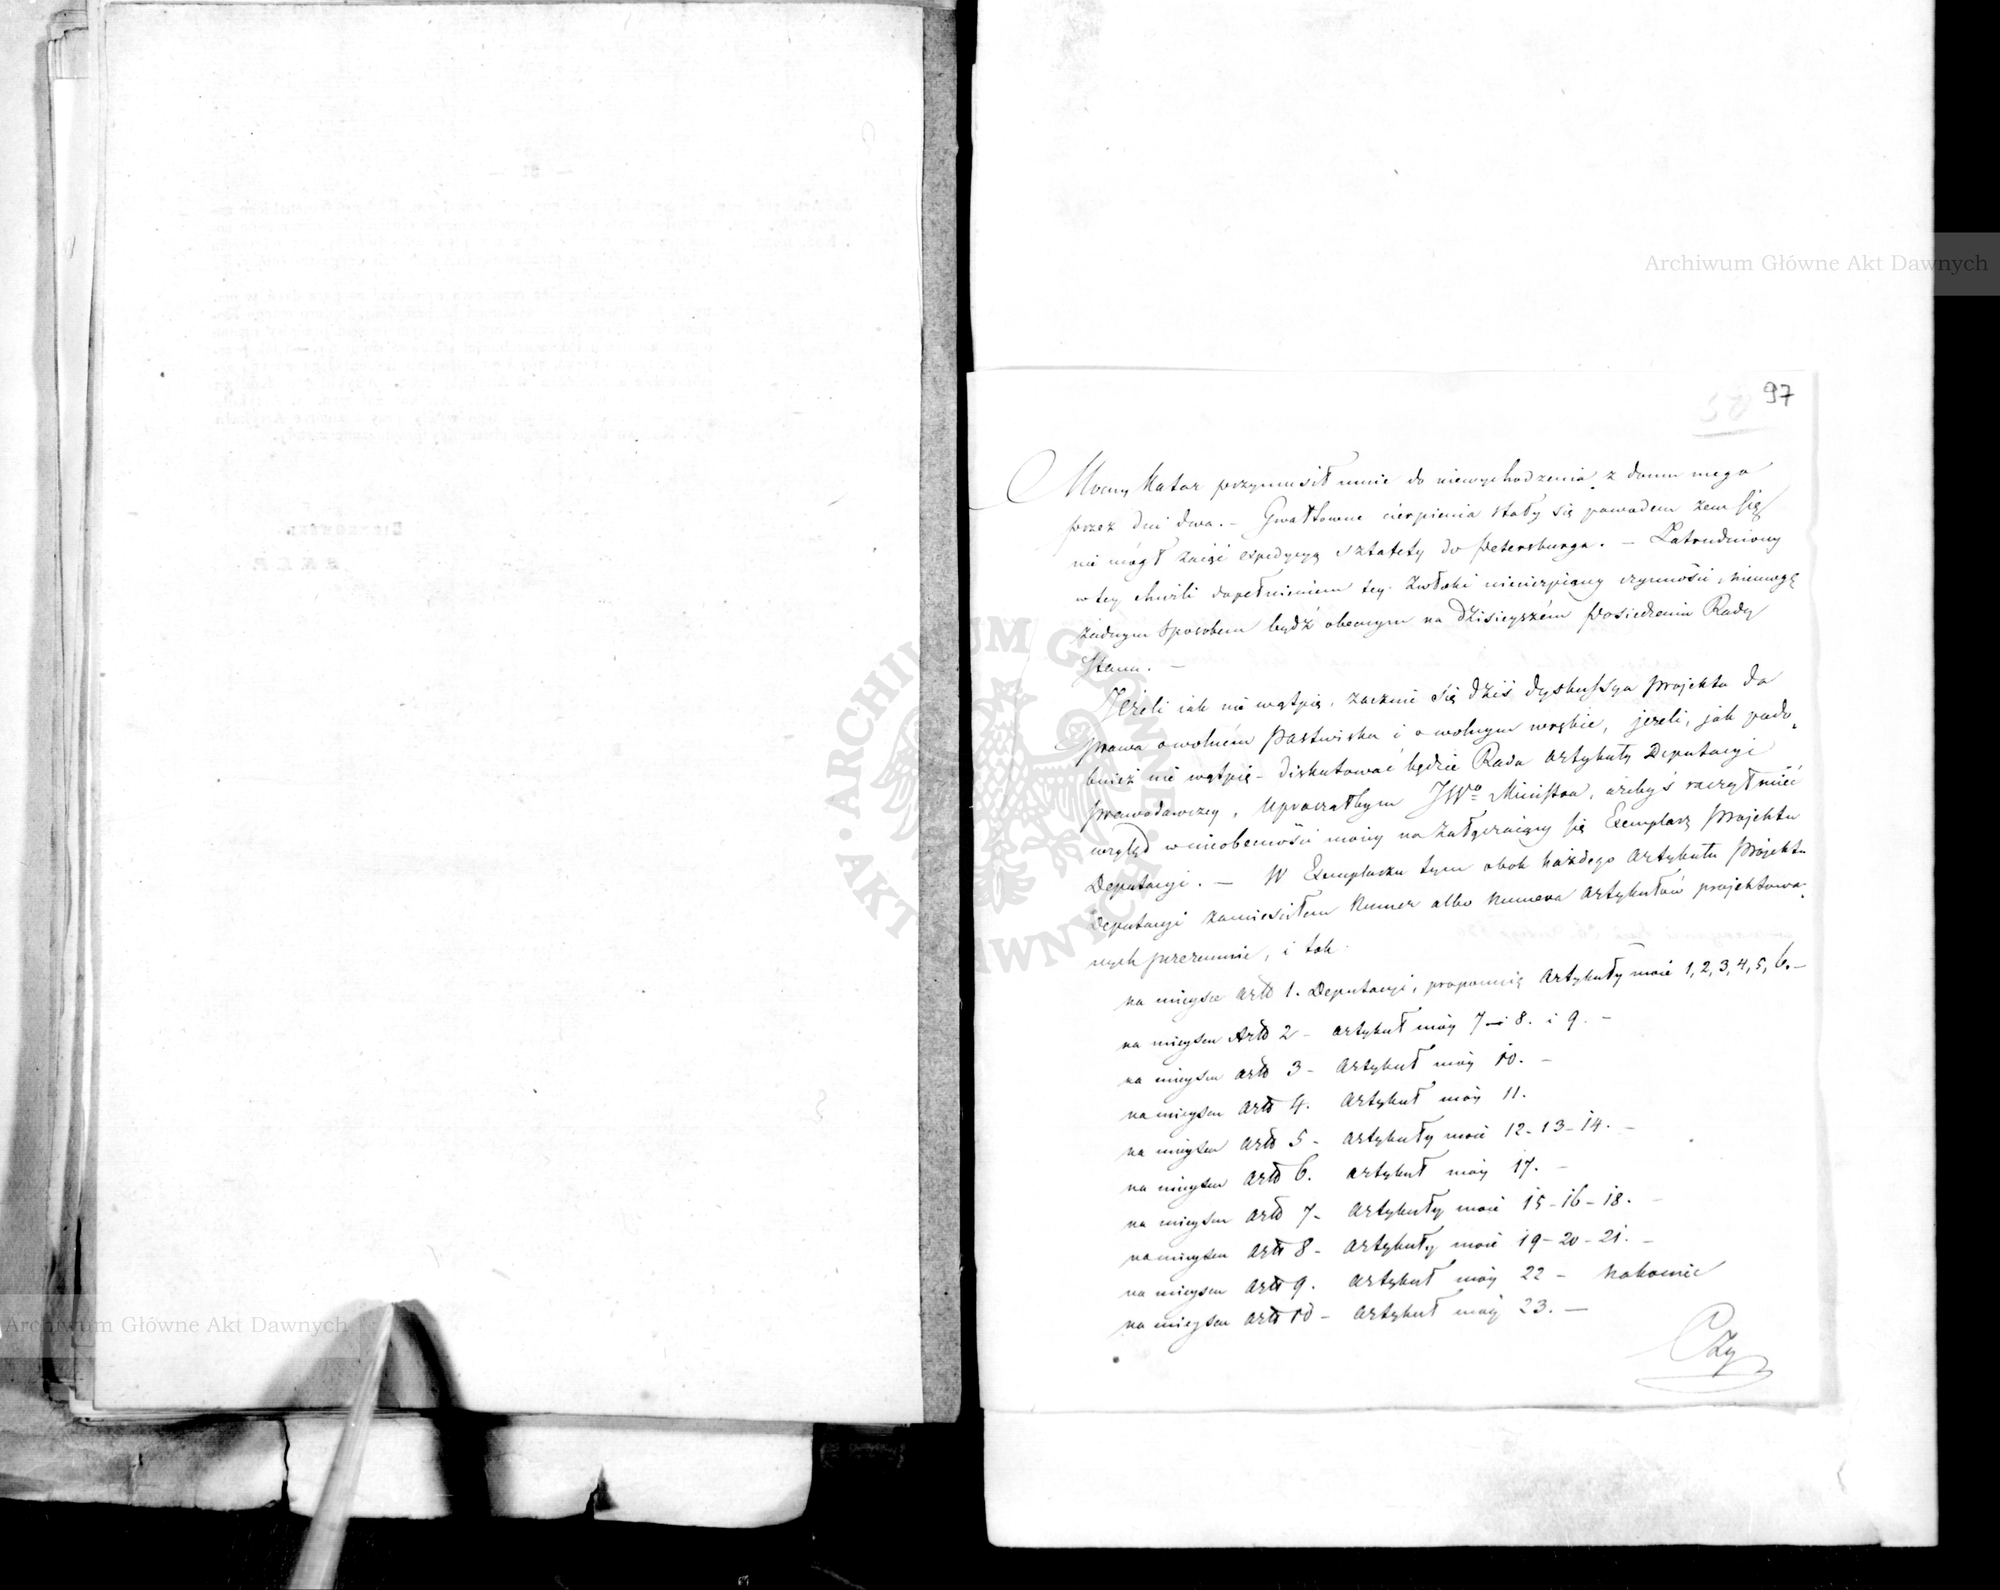 Archiwum Główne Akt Dawnych
97
Mocny Katar przymusił mnie do niewychodzenia z domu mego
przez dni dwa. – Gwałtowne cierpienia stały się powodem żem się
nie mógł zaiąć expedycyą sztafety do Petersburga. – Zatrudniony
w tey chwili dopełnieniem tey zwłoki niecierpiący czynności, niemogę
żadnym sposobem bydź obecnym na dzisieyszém Posiedzeniu Rady
Stanu. –
Jeżeli iak nie wątpię, zacznie się dziś dyskussya projektu do
prawa o wolném Pastwisku i o wolnym wrębie, jeżeli, jak podo-
bnież nie wątpię – diskutować będzie Rada artykuły Deputacyi
Prawodawczey, upraszałbym JWo Ministra, ażebyś raczył mieć
wzgląd w nieobecności moiey na załączaiący się Exemplarz Projektu
Deputacyi. – W Exemplarzu tym obok każdego artykułu Projektu
Deputacyi zamieściłem Numer albo Numera artykułów projektowa-
nych przezemnie, i tak:
na mieysce artu 1. Deputacyi, proponuię artykuły moie 1, 2, 3, 4, 5, 6. –
na mieyscu Artu 2 – artykuł móy 7 – i 8. i 9. –
na mieyscu artu 3 – artykuł móy 10. –
na mieyscu artu 4. artykuł móy 11.
na mieyscu artu 5 – artykuły moie 12 – 13 – 14. –
na mieyscu artu 6. artykuł móy 17. –
na mieyscu artu 7 – artykuły moie 15 – 16 – 18. –
na mieyscu artu 8 – artykuły moie 19 – 20 – 21. –
na mieyscu artu 9. artykuł móy 22 – nakoniec
na mieyscu artu 10 – artykuł móy 23. –
ARCHIWUM GŁÓWNE AKT DAWNYCH
Archiwum Główne Akt Dawnych